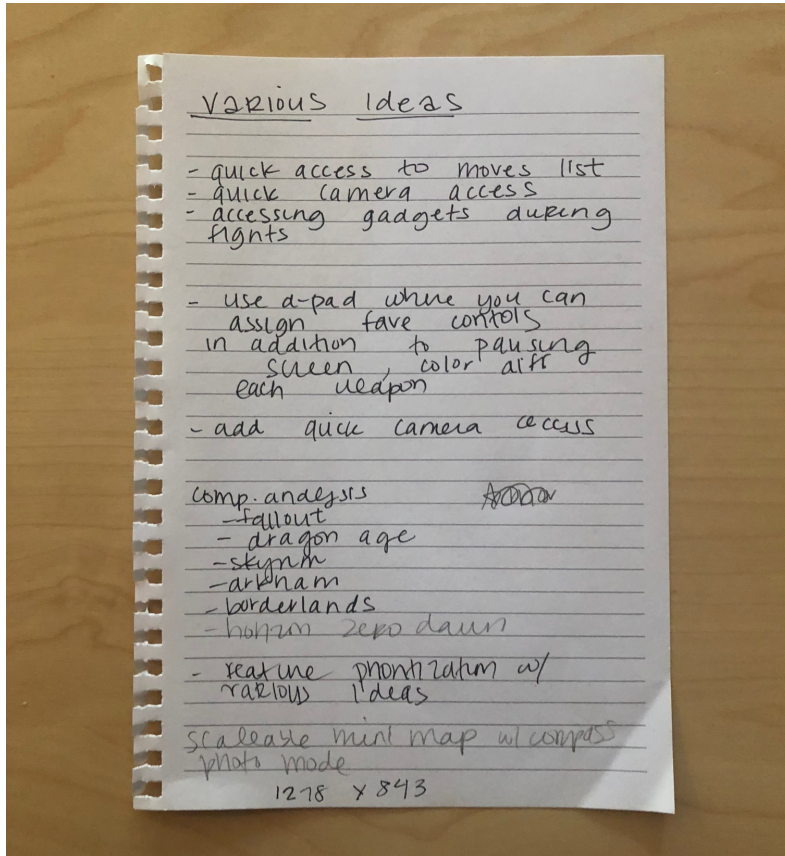 Various Ideas
- quick access to moves list
- quick camera access
- accessing gadgets during
fights
- use d-pad where you can
assign fave contols
in addition to pausing
screen, color diff
each weapon
- add quick camera access
comp. analysis
- fallout
- dragon age
- skyrim
- arkham
- borderlands
- horizon zero dawn
- feature prioritization w/
various ideas
scaleable mini map w/ compass
photo mode
1278 x 843